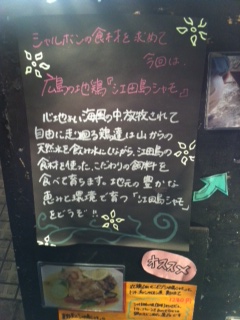 シャルボンの食材を求めて
今回は、
広島の地鶏『江田島シャモ』
心地よい海風の中放牧されて
自由に走り回る鶏達は山からの
天然水を飲み水としながら、江田島の
食材を使った、こだわりの飼料を
食べて育ちます。地元の豊かな
恵みと環境で育つ「江田島シャモ」
をどうぞ!!
オススメ